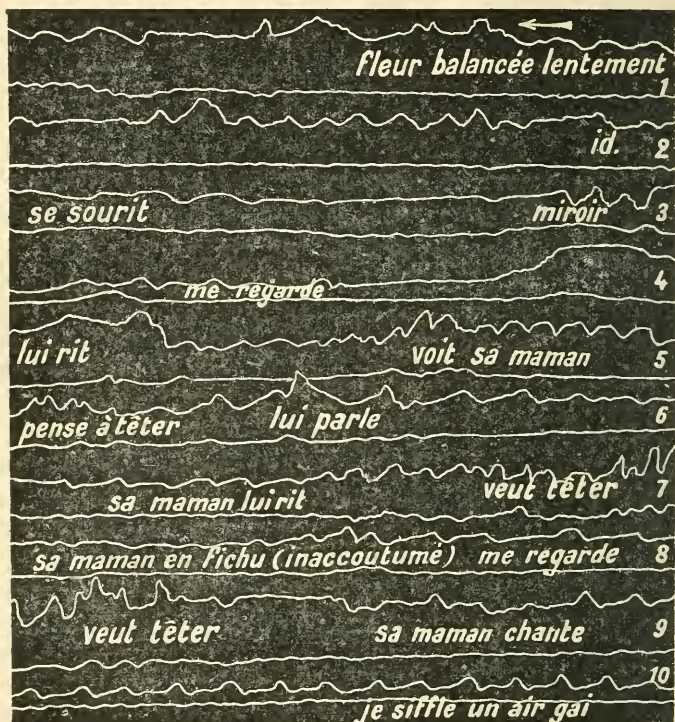 fleur balancée lentement
1
id. 2
se sourit miroir 3
me regarde 4
lui rit voit sa maman 5
pense à têter lui parle 6
sa maman lui rit veut têter 7
sa maman en fichu (inaccoutumé) me regarde 8
veut têter sa maman chante 9
10
je siffle un air gai